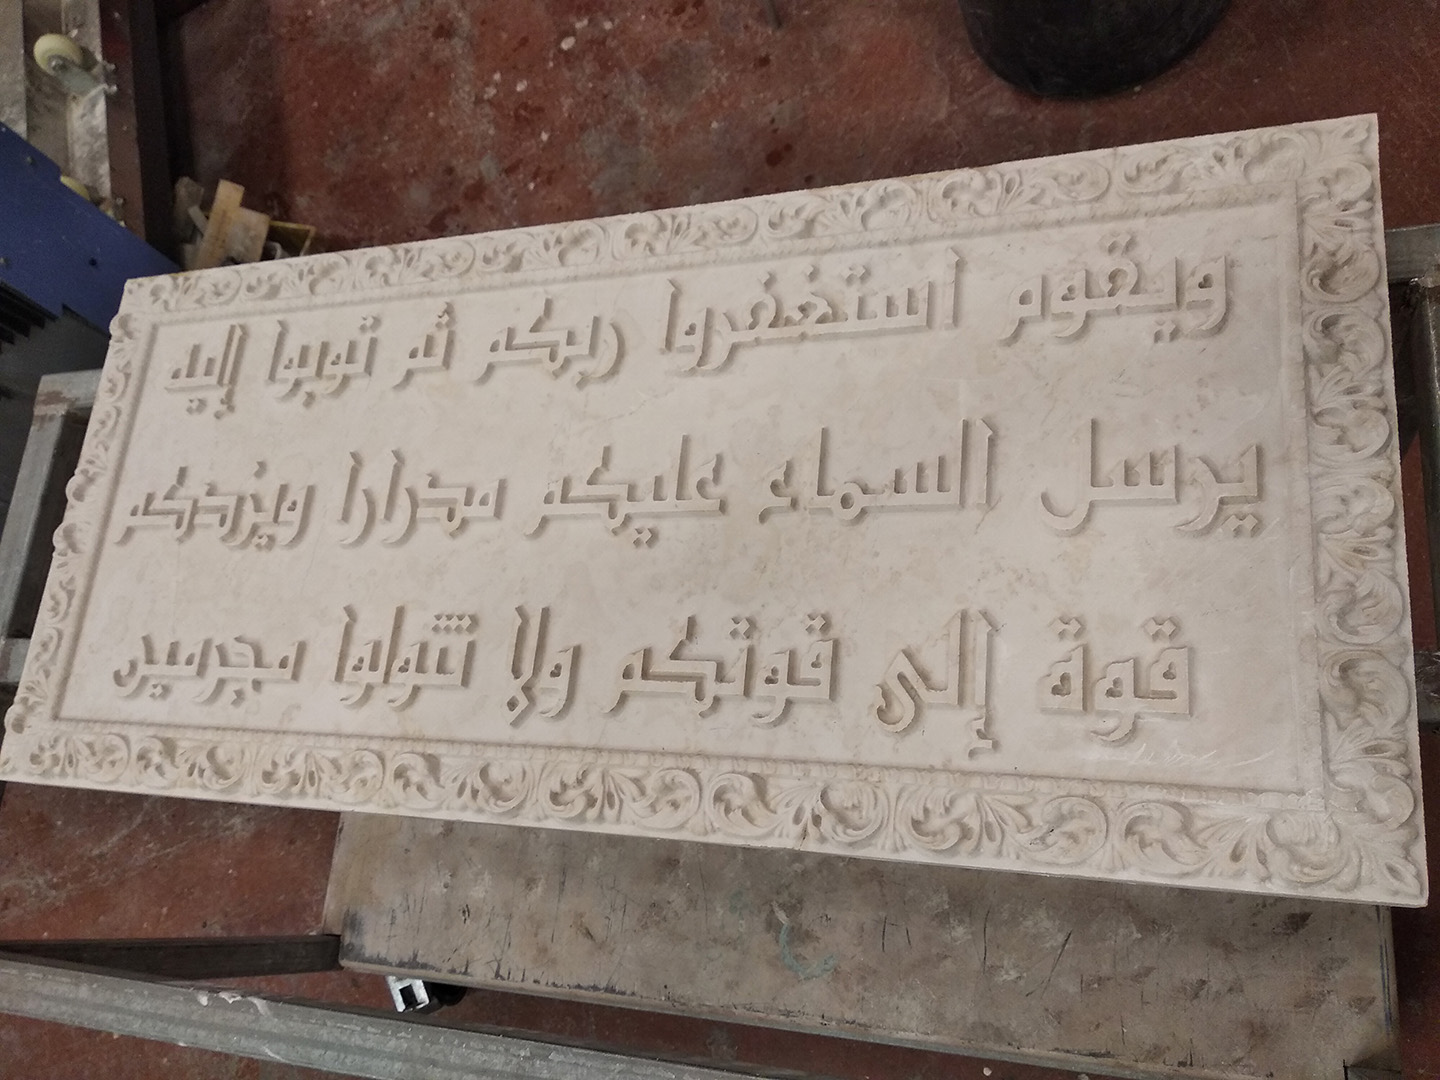 ويقوم استغفروا ربكم ثم توبوا إليه
يرسل السماء عليكم مدرارا ويزدكم
قوة إلى قوتكم ولا تتولوا مجرمين